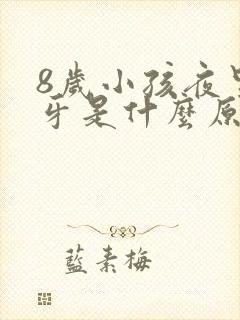 8歲小孩夜
牙是什麼原
藍素梅